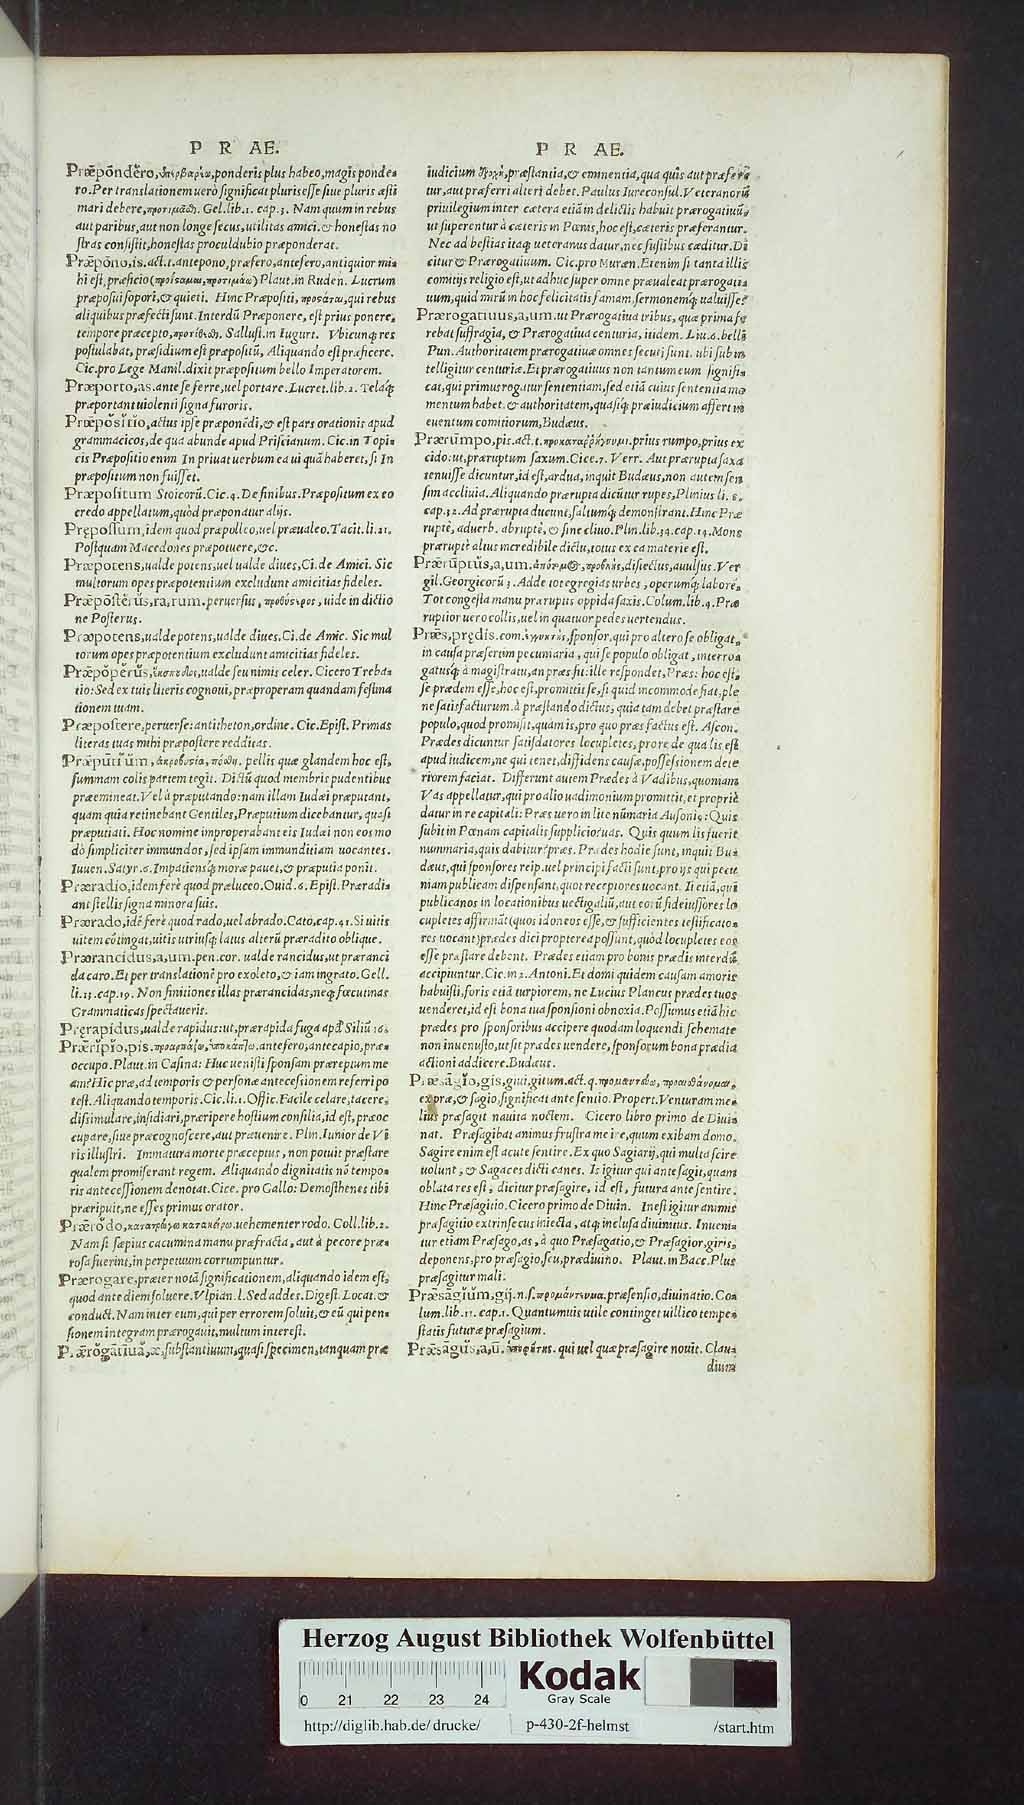 P R AE.
Præpōndĕro, ὑπερβαρέω, ponderis plus habeo, magis ponde-
ro. Per translationem uerò significat pluris esse siue pluris æsti
mari debere, προτιμᾶσθαι. Gel. lib. 1. cap. 3. Nam quum in rebus
aut paribus, aut non longe secus, utilitas amici, & honestas no
stras consistit, honestas proculdubio præponderat.
Præpōno, is. act. t. antepono, præfero, antefero, antiquior mi-
hi est, præficio (προΐσταμαι, προτιμάω) Plaut. in Ruden. Lucrum
præposui sopori, & quieti. Hinc Præpositi, qui rebus
aliquibus præfecti sunt. Interdū Præponere, est prius ponere,
tempore præcepto, προτίθεσθαι. Sallust. in Iugurt. Vbicunq; res
postulabat, præsidium est præpositū, Aliquando est præficere.
Cic. pro Lege Manil. dixit præpositum bello Imperatorem.
Præporto, as. ante se ferre, uel portare. Lucret. lib. 2. Telaq́;
præportant uiolenti signa furoris.
Præpŏsĭtĭo, actus ipse præponēdi, & est pars orationis apud
grammaticos, de qua abunde apud Priscianum. Cic. in Topi-
cis Præpositio enim In priuat uerbum ea ui quā haberet, si In
præpositum non fuisset.
Præpositum Stoicorū. Cic. 4. De finibus. Præpositum ex eo
credo appellatum, quòd præponatur alijs.
Prępossum, idem quod præpolleo, uel præualeo. Tacit. li. 21.
Postquam Macedones præpotuere, &c.
Præpotens, ualde potens, uel ualde diues, Ci. de Amici. Sic
multorum opes præpotentium excludunt amicitias fideles.
Præpōstĕrŭs, ra, rum. peruersus, προθύστερος, uide in dictio
ne Posterus.
Præpotens, ualde potens, ualde diues, Ci. de Amic. Sic mul
torum opes præpotentium excludunt amicitias fideles.
Præpŏpĕrŭs, ualde seu nimis celer. Cicero Treba-
tio: Sed ex tuis literis cognoui, præproperam quandam festina
tionem tuam.
Præpostere, peruerse: antitheton, ordine. Cic. Epist. Primas
literas tuas mihi præpostere redditas.
Præpūtĭum, ἀκροβυστία, πόσθη. pellis quæ glandem hoc est,
summam colis partem tegit. Dictū quod membris pudentibus
præemineat. Vel à præputando: nam illam Iudæi præputant,
quam quia retinebant Gentiles, Præputium dicebantur, quasi
præputiati. Hoc nomine improperabant eis Iudæi non eos mo
dò simpliciter immundos, sed ipsam immunditiam uocantes.
Iuuen. Satyr. 6. Impatiensq́; moræ pauet, & præputia ponit.
Præradĭo, idem ferè quod præluceo. Ouid. 6. Epist. Præradi-
ant stellis signa minora suis.
Prærado, idē ferè quod rado, uel abrado. Cato, cap. 41. Si uitis
uitem cōtingat, uitis utriusq; latus alterū præradito oblique.
Prærancĭdus, a, um. pen. cor. ualde rancidus, ut præranci
da caro. Et per translationē pro exoleto, & iam ingrato. Gell.
li. 13. cap. 19. Non finitiones illas prærancidas, neq; fœcutinas
Grammaticas spectaueris.
Pręrapidus, ualde rapidus: ut, prærapida fuga apd' Siliū 16.
Præripĭo, pis. προαρπάζω, antefero, antecapio, præ-
occupo. Plaut. in Casina: Huc uenisti sponsam præreptum me
am? Hic præ, ad temporis & personæ antecessionem referri po
test. Aliquando temporis. Cic. li. 1. Offic. Facile celare, tacere,
dissimulare, insidiari, præripere hostium consilia, id est, præoc
cupare, siue præcognoscere, aut præuenire. Plin. Iunior de Vi
ris illustri. Immatura morte præceptus, non potuit præstare
qualem promiserant regem. Aliquando dignitatis nō tempo-
ris antecessionem denotat. Cice. pro Gallo: Demosthenes tibi
præripuit, ne esses primus orator.
Prærōdo, κατατρώγω κατακείρω. uehementer rodo. Coll. lib. 2.
Nam si sæpius cacumina manu præfracta, aut à pecore præ-
rosa fuerint, in perpetuum corrumpuntur.
Prærogare, præter notā significationem, aliquando idem est,
quod ante diem soluere. Vlpian. l. Sed addes. Digest. Locat. &
conduct. Nam inter eum, qui per errorem soluit, & eū qui pen-
sionem integram prærogauit, multum interest.
Prærŏgātīuă, æ, substantiuum, quasi specimen, tanquam præ
P R AE.
iudicium ἐξοχὴ, præstantia, & eminentia, qua quis aut præfer-
tur, aut præferri alteri debet. Paulus Iureconsul. Veteranorū
priuilegium inter cætera etiā in delictis habuit prærogatiuū,
ut superentur à cæteris in Pœnis, hoc est, cæteris præferantur.
Nec ad bestias itaq; ueteranus datur, nec fustibus cæditur. Di
citur & Prærogatiuum. Cic. pro Muræn. Etenim si tanta illis
comitijs religio est, ut adhuc super omne præualeat prærogati-
uum, quid mirū in hoc felicitatis famam, sermonemq́; ualuisse?
Prærogatiuus, a, um. ut Prærogatiua tribus, quæ prima fe
rebat suffragia, & Prærogatiua centuria, itidem. Liu. 6. belli
Pun. Authoritatem prærogatiuæ omnes secuti sunt. ubi subin
telligitur centuriæ. Et prærogatiuus non tantum eum signifi-
cat, qui primus rogatur sententiam, sed etiā cuius sententia mo
mentum habet. & authoritatem, quasiq́; præiudicium affert in
euentum comitiorum, Budæus.
Prærūmpo, pis. act. t. προκαταῤῥήγνυμι. prius rumpo, prius ex
cido: ut, præruptum saxum. Cice. 7. Verr. Aut prærupta saxa
tenuisse dicuntur, id est, ardua, inquit Budæus, non autem sen
sim accliuia. Aliquando prærupta dicūtur rupes, Plinius li. 8.
cap. 32. Ad prærupta ducunt, saltumq́; demonstrant. Hinc Præ
ruptè, aduerb. abruptè, & sine cliuo. Plin. lib. 34. cap. 14. Mons
præruptè altus incredibile dictu, totus ex ea materie est.
Prærŭptŭs, a, um. ἀπότομος, προβλής, disiectus, auulsus. Ver
gil. Georgicorū 2. Adde tot egregias urbes, operumq́; laborē,
Tot congesta manu præruptis oppida saxis. Colum. lib. 4. Præ
ruptior uero collis, uel in quatuor pedes uertendus.
Præs, prędis. com. ἐγγυητὴς, sponsor, qui pro altero se obligat,
in causa præsertim pecuniaria, qui se populo obligat, interro-
gatusq́; à magistratu, an præs sit: ille respondet, Præs: hoc est,
se prædem esse, hoc est, promittit se, si quid incommode fiat, ple
ne satisfacturum. à præstando dictus, quia tam debet præstare
populo, quod promisit, quàm is, pro quo præs factus est. Ascon.
Prædes dicuntur satisdatores locupletes, pro re de qua lis est
apud iudicem, ne qui tenet, diffidens causæ, possessionem dete
riorem faciat. Differunt autem Prædes à Vadibus, quoniam
Vas appellatur, qui pro alio uadimonium promittit, et propriè
datur in re capitali: Præs uero in lite nūmaria Ausoniꝰ: Quis
subit in Pœnam capitalis supplicio? uas. Quis quum lis fuerit
nummaria, quis dabitur? præs. Prædes hodie sunt, inquit Bu-
dæus, qui sponsores reip. uel principi facti sunt, pro ijs qui pecu
niam publicam dispensant, quot receptores uocant. Ii etiā, qui
publicanos in locationibus uectigaliū, aut eorū fideiussores lo
cupletes affirmāt (quos idoneos esse, & sufficientes testificato-
res uocant) prædes dici propterea possunt, quòd locupletes eos
esse præstare debent. Prædes etiam pro bonis prædis interdū
accipiuntur. Cic. in 2. Antoni. Et domi quidem causam amoris
habuisti, foris etiā turpiorem, ne Lucius Plancus prædes tuos
uenderet, id est bona tua sponsioni obnoxia. Possumus etiā hic
prædes pro sponsoribus accipere quodam loquendi schemate
non inuenusto, ut sit prædes uendere, sponsorum bona prædia
actioni addicere. Budæus.
Præsāgĭo, gis, giui, gitum. act. q. προμαντεύω, προαισθάνομαι,
ex præ, & sagio, significat ante sentio. Propert. Venturam me-
lius præsagit nauita noctem. Cicero libro primo de Diui-
nat. Præsagibat animus frustra me ire, quum exibam domo.
Sagire enim est acute sentire. Ex quo Sagiarij, qui multa scire
uolunt, & Sagaces dicti canes. Is igitur qui ante sagit, quàm
oblata res est, dicitur præsagire, id est, futura ante sentire.
Hinc Præsagitio. Cicero primo de Diuin. Inest igitur animis
præsagitio extrinsecus iniecta, atq; inclusa diuinitus. Inueni-
tur etiam Præsago, as, à quo Præsagatio, & Præsagior, giris,
deponens, pro præsagio, seu, prædiuino. Plaut. in Bacc. Plus
præsagitur mali.
Præsāgĭum, gij. n. s. προμάντευμα. præsensio, diuinatio. Co-
lum. lib. 11. cap. 1. Quantumuis utile continget uillico tempe-
statis futuræ præsagium.
Præsāgŭs, a, ū. qui uel quæ præsagire nouit. Clau-
dium
Herzog August Bibliothek Wolfenbüttel
Kodak
Gray Scale
0 21 22 23 24
http://diglib.hab.de/drucke/ p-430-2f-helmst /start.htm